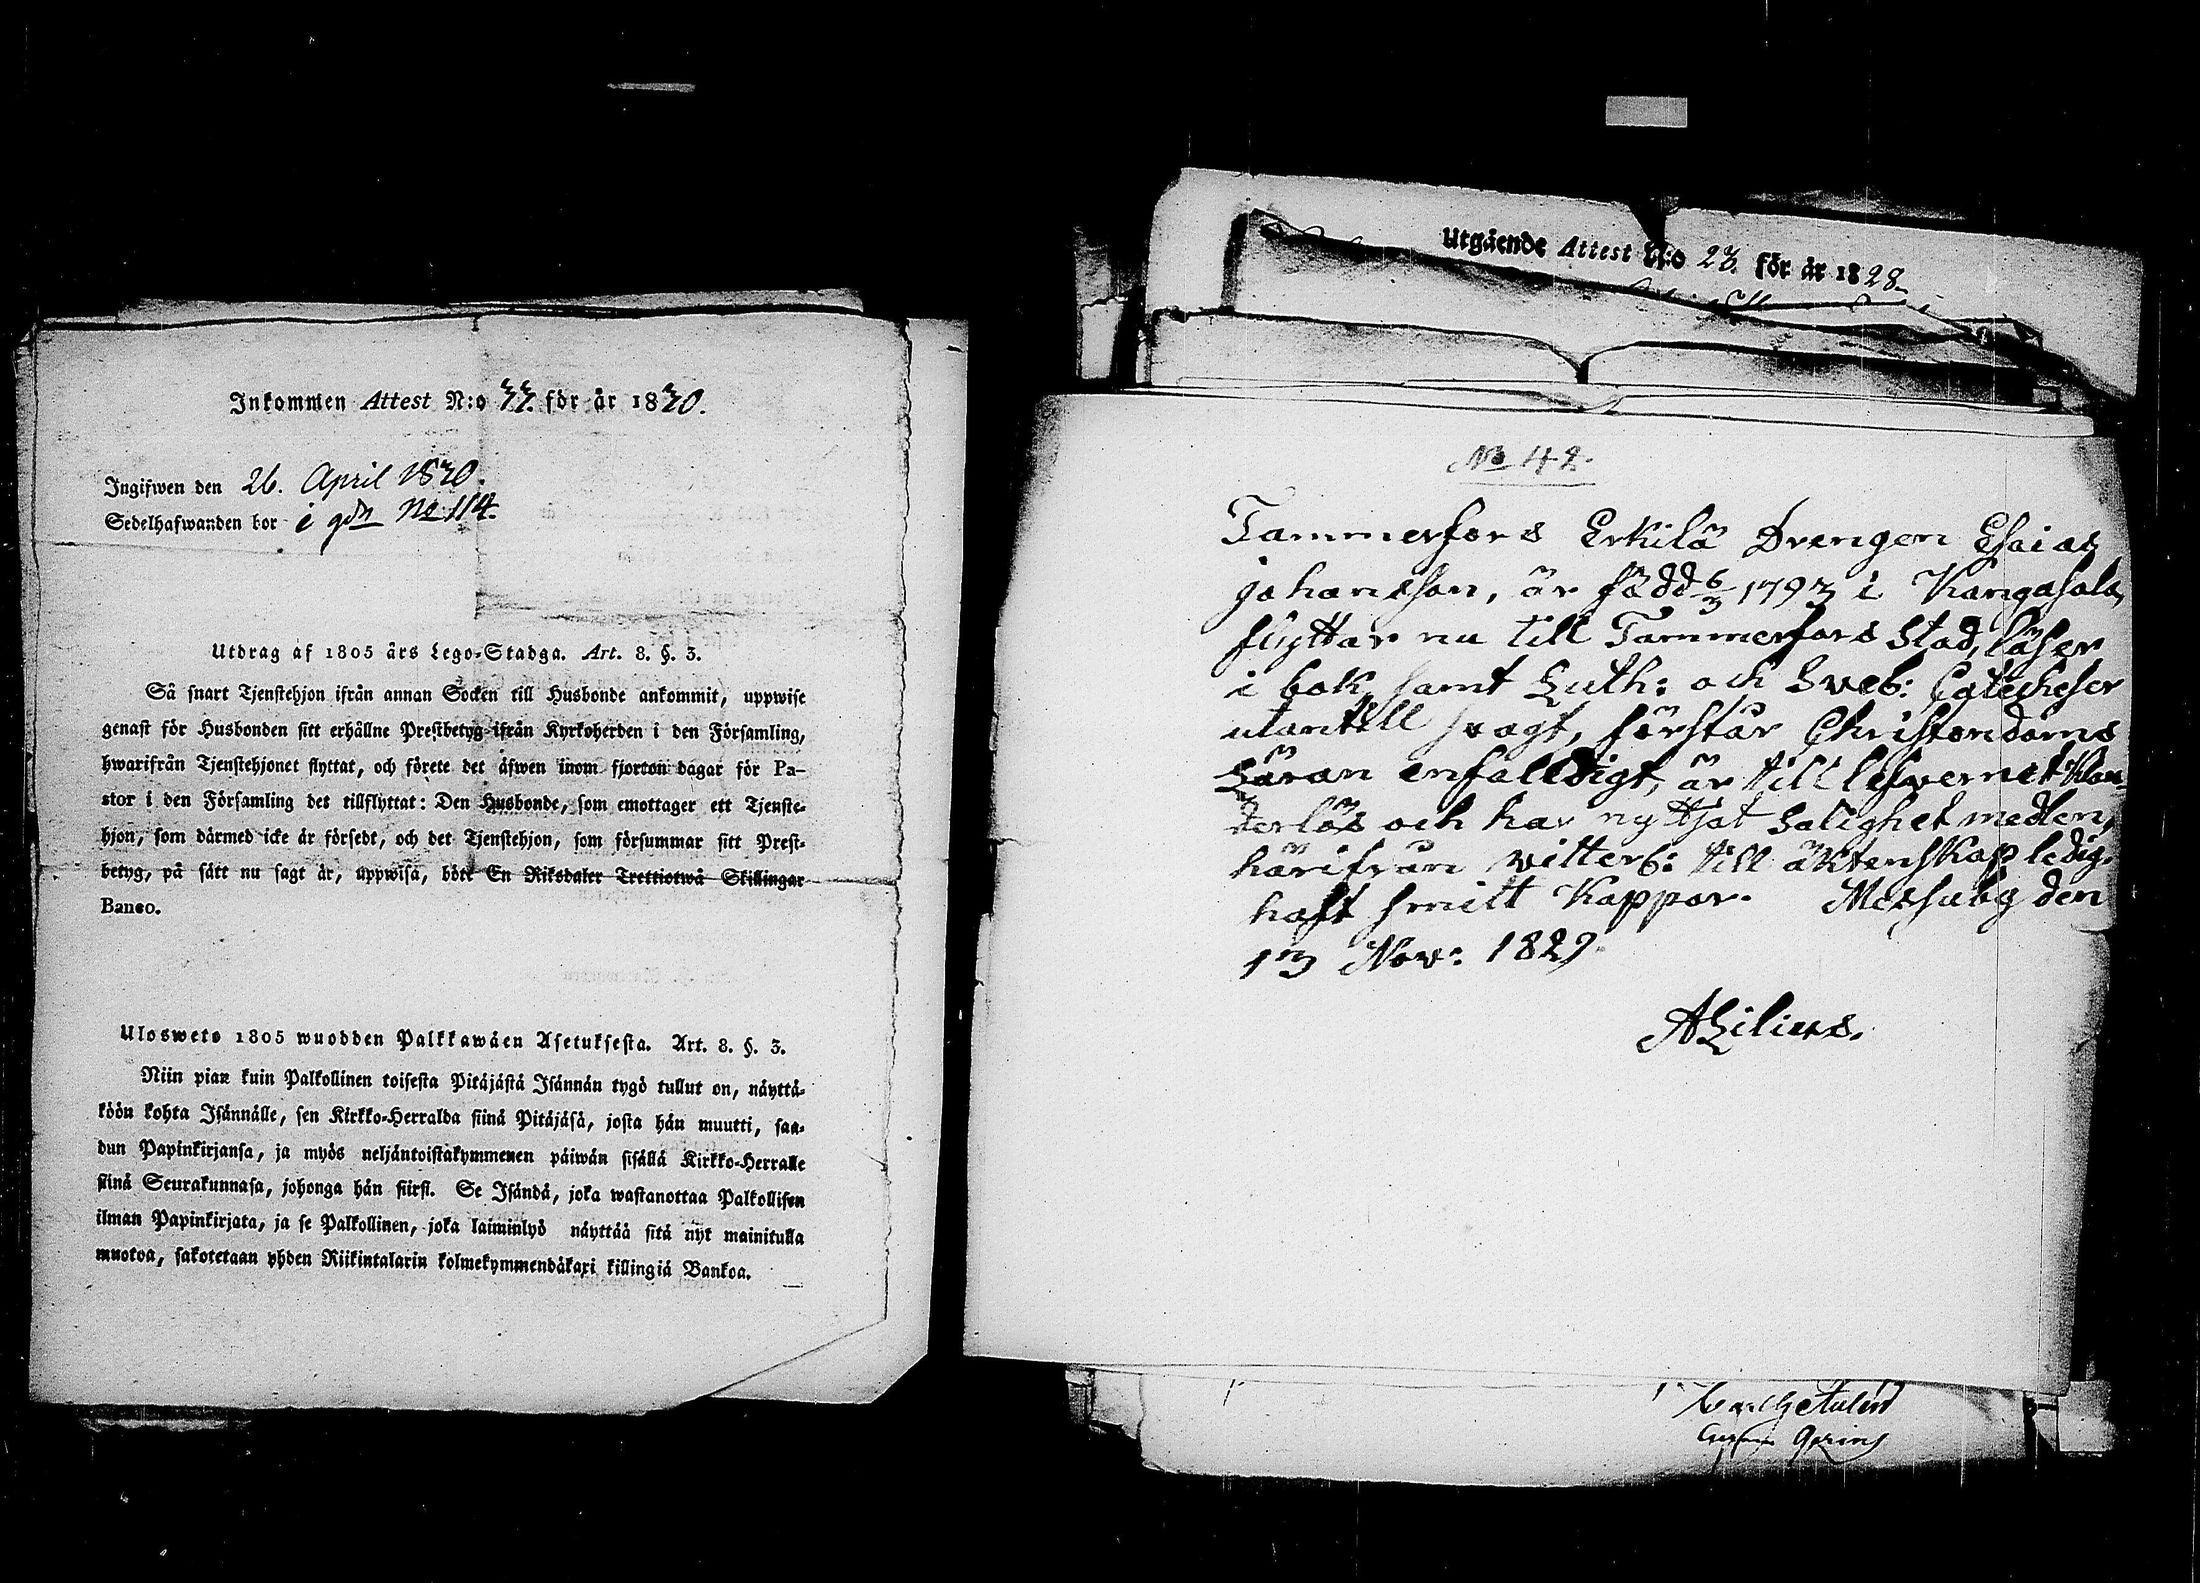 Inkommen Attest N:o 33. för år 1830.
Ingifwen den 26. April 1830.
Sedelhafwanden bor i gdn No 114.
Utdrag af 1805 års Lego-Stadga. Art. 8. §. 3.
Så snart Tjenstehjon ifrån annan Socken till Husbonde ankommit, uppwise
genast för Husbonden sitt erhållne Prestbetyg ifrån Kyrkoherden i den Församling,
hwarifrån Tjenstehjonet flyttat, och förete det äfwen inom fjorton dagar för Pa-
stor i den Församling det tillflyttat: Den Husbonde, som emottager ett Tjenste-
hjon, som därmed icke är försedt, och det Tjenstehjon, som försummar sitt Prest-
betyg, på sätt nu sagt är, uppwisa, böte En Riksdaler Trettiotwå Skillingar
Banco.
Ulosweto 1805 wuodden Palkkawäen Asetuksesta. Art. 8. §. 3.
Niin pian kuin Palkollinen toisesta Pitäjästä Isännän tygö tullut on, näyttä-
köön kohta Isännälle, sen Kirkko-Herralda siinä Pitäjäsä, josta hän muutti, saa-
dun Papinkirjansa, ja myös neljäntoistakymmenen päiwän sisällä Kirkko-Herralle
siinä Seurakunnasa, johonga hän siirsi. Se Isändä, joka wastanottaa Palkollisen
ilman Papinkirjata, ja se Palkollinen, joka laiminlyö näyttää sitä nyt mainitulla
muotoa, sakotetaan yhden Riikintalarin kolmekymmendäkaxi killingiä Bankoa.
Utgående Attest N:o 23. för år 1828.
No 42.
Tammerfors Erkilä Drengen Esaias
johansson, är född 6/3 1793 i Kangasala,
flyttar nu till Tammerfors Stad, läser
i bok, samt Luth: och Sveb: Catecheser
utantill svagt, förstår Christendoms
Läran enfalldigt, är till lefvernet klan-
derlös och har nyttjat Salighetmedlen,
härifrån vitterb: till äktenskap ledig.
haft smitt Kappor. Messuby den
13 Nov: 1829.
ALilius.